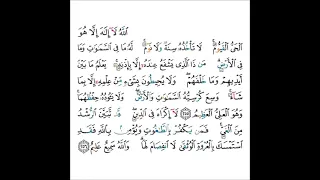 ٱللَّهُ لَآ إِلَٰهَ إِلَّا هُوَ
ٱلْحَىُّ ٱلْقَيُّومُ ۚ لَا تَأْخُذُهُۥ سِنَةٌ وَلَا نَوْمٌ ۚ لَّهُۥ مَا فِى ٱلسَّمَٰوَٰتِ وَمَا
فِى ٱلْأَرْضِ ۗ مَن ذَا ٱلَّذِى يَشْفَعُ عِندَهُۥٓ إِلَّا بِإِذْنِهِۦ ۚ يَعْلَمُ مَا بَيْنَ
أَيْدِيهِمْ وَمَا خَلْفَهُمْ ۖ وَلَا يُحِيطُونَ بِشَىْءٍ مِّنْ عِلْمِهِۦٓ إِلَّا بِمَا
شَآءَ ۚ وَسِعَ كُرْسِيُّهُ ٱلسَّمَٰوَٰتِ وَٱلْأَرْضَ ۖ وَلَا يَـُٔودُهُۥ حِفْظُهُمَا ۚ
وَهُوَ ٱلْعَلِىُّ ٱلْعَظِيمُ ٢٥٥ لَآ إِكْرَاهَ فِى ٱلدِّينِ ۖ قَد تَّبَيَّنَ ٱلرُّشْدُ
مِنَ ٱلْغَىِّ ۚ فَمَن يَكْفُرْ بِٱلطَّٰغُوتِ وَيُؤْمِنۢ بِٱللَّهِ فَقَدِ
ٱسْتَمْسَكَ بِٱلْعُرْوَةِ ٱلْوُثْقَىٰ لَا ٱنفِصَامَ لَهَا ۗ وَٱللَّهُ سَمِيعٌ عَلِيمٌ ٢٥٦